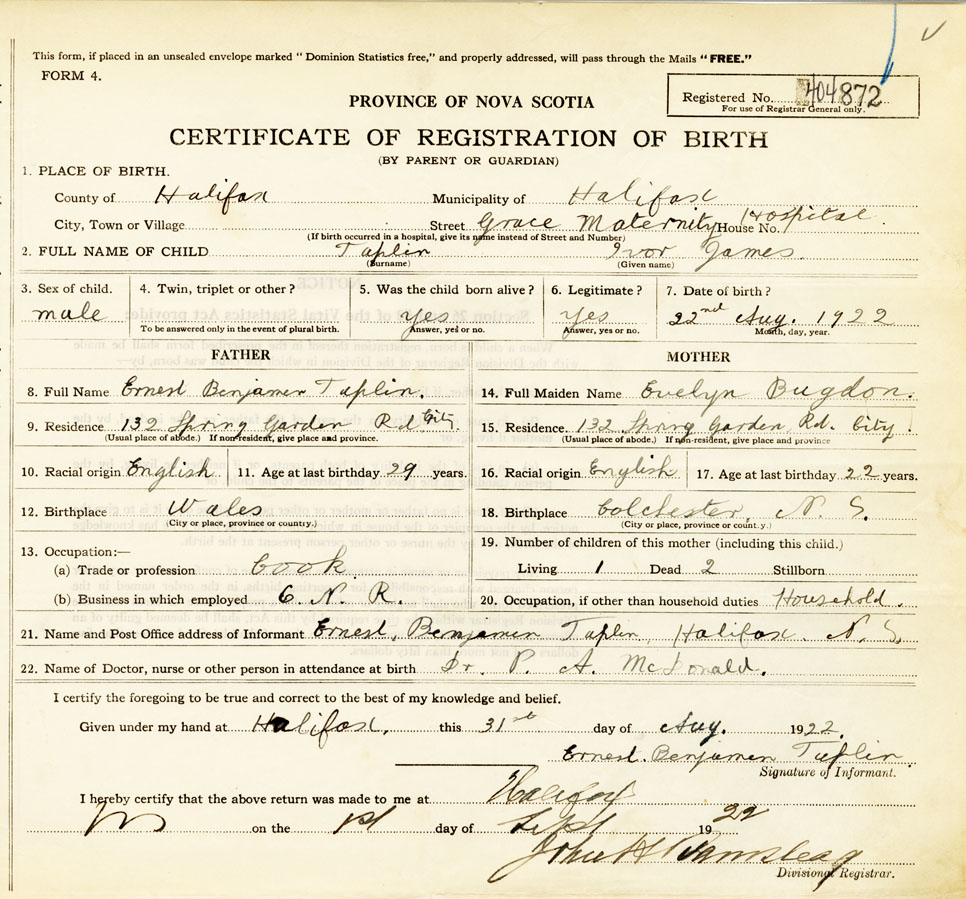 This form, if placed in an unsealed envelope marked "Dominion Statistics free," and properly addressed, will pass through the Mails "FREE."
FORM 4.
Registered No. 404872
For use of Registrar General only.
PROVINCE OF NOVA SCOTIA
CERTIFICATE OF REGISTRATION OF BIRTH
(BY PARENT OR GUARDIAN)
1. PLACE OF BIRTH.
County of Halifax Municipality of Halifax
City, Town or Village Street Grace Maternity House No. Hospital
(If birth occurred in a hospital, give its name instead of Street and Number)
2. FULL NAME OF CHILD Taplin Ivor James
(Surname) (Given name)
3. Sex of child. 4. Twin, triplet or other? 5. Was the child born alive? 6. Legitimate? 7. Date of birth?
male yes yes 22nd Aug. 1922
To be answered only in the event of plural birth. Answer, yes or no. Answer, yes or no. Month, day, year.
FATHER MOTHER
8. Full Name Ernest Benjamen Taplin. 14. Full Maiden Name Evelyn Bugdon.
9. Residence 132 Spring Garden Rd City. 15. Residence. 132 Spring Garden Rd. City.
(Usual place of abode.) If non-resident, give place and province. (Usual place of abode.) If non-resident, give place and province
10. Racial origin English 11. Age at last birthday 29 years. 16. Racial origin English 17. Age at last birthday 22 years.
12. Birthplace Wales 18. Birthplace Colchester, N. S.
(City or place, province or country.) (City or place, province or county.)
13. Occupation:— 19. Number of children of this mother (including this child.)
(a) Trade or profession Cook Living 1 Dead 2 Stillborn
(b) Business in which employed C. N. R. 20. Occupation, if other than household duties Household.
21. Name and Post Office address of Informant Ernest. Benjamen Taplin, Halifax. N. S.
22. Name of Doctor, nurse or other person in attendance at birth Dr. P. A. McDonald.
I certify the foregoing to be true and correct to the best of my knowledge and belief.
Given under my hand at Halifax. this 31st day of Aug. 1922.
Ernest. Benjamen Taplin.
Signature of Informant.
I hereby certify that the above return was made to me at Halifax
NS on the 1st day of Sept 1922
John H
Divisional Registrar.